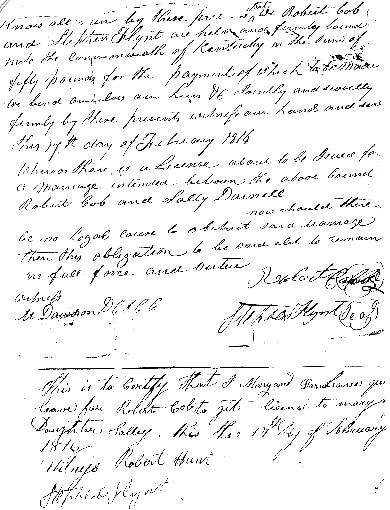 Know all men by these pre that we Robert Cob
and Stephen Flynt are held and firmly bound
unto the commonwealth of Kentucky in the sum of
fifty pounds for the payment of which
we bind ourselves our heirs &c Jointly and severally
firmly by these presents witness our hand and seal
this 17th day of February 1816
Whereas there is a License about to be Issued for
a marriage intended between the above bound
Robert Cob and Sally Darnell
now should there
be no legal cause to obstruct said marriage
then this obligation to be void else to remain
in full force and virtue
witness
Robert
W Davidson D C C C
Stephen Flynt Seal
This is to Certify that I Margaret give
leave for Robert Cob to git license to marry
Daughter Salley this the 17th Day of February
1816
Witness Robert Hunt
Stephen Flynt